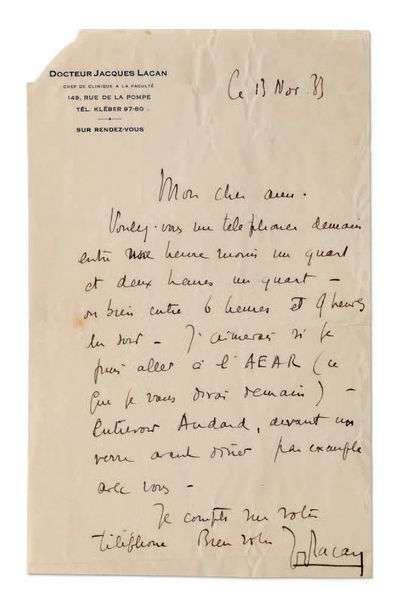 DOCTEUR JACQUES LACAN
CHEF DE CLINIQUE A LA FACULTÉ
149, RUE DE LA POMPE
TÉL. KLÉBER 97-80
SUR RENDEZ-VOUS
Ce 13 Nov. 33
Mon cher ami.
Voulez-vous me téléphoner demain
entre une heure moins un quart
et deux heures un quart –
ou bien entre 6 heures et 9 heures
du soir – J'aimerais si je
puis aller à l'AEAR (ce
que je vous dirai demain) –
Entrevoir Audard, devant un
verre avant dîner par exemple
avec vous –
Je compte sur votre
téléphone Bien votre
J Lacan